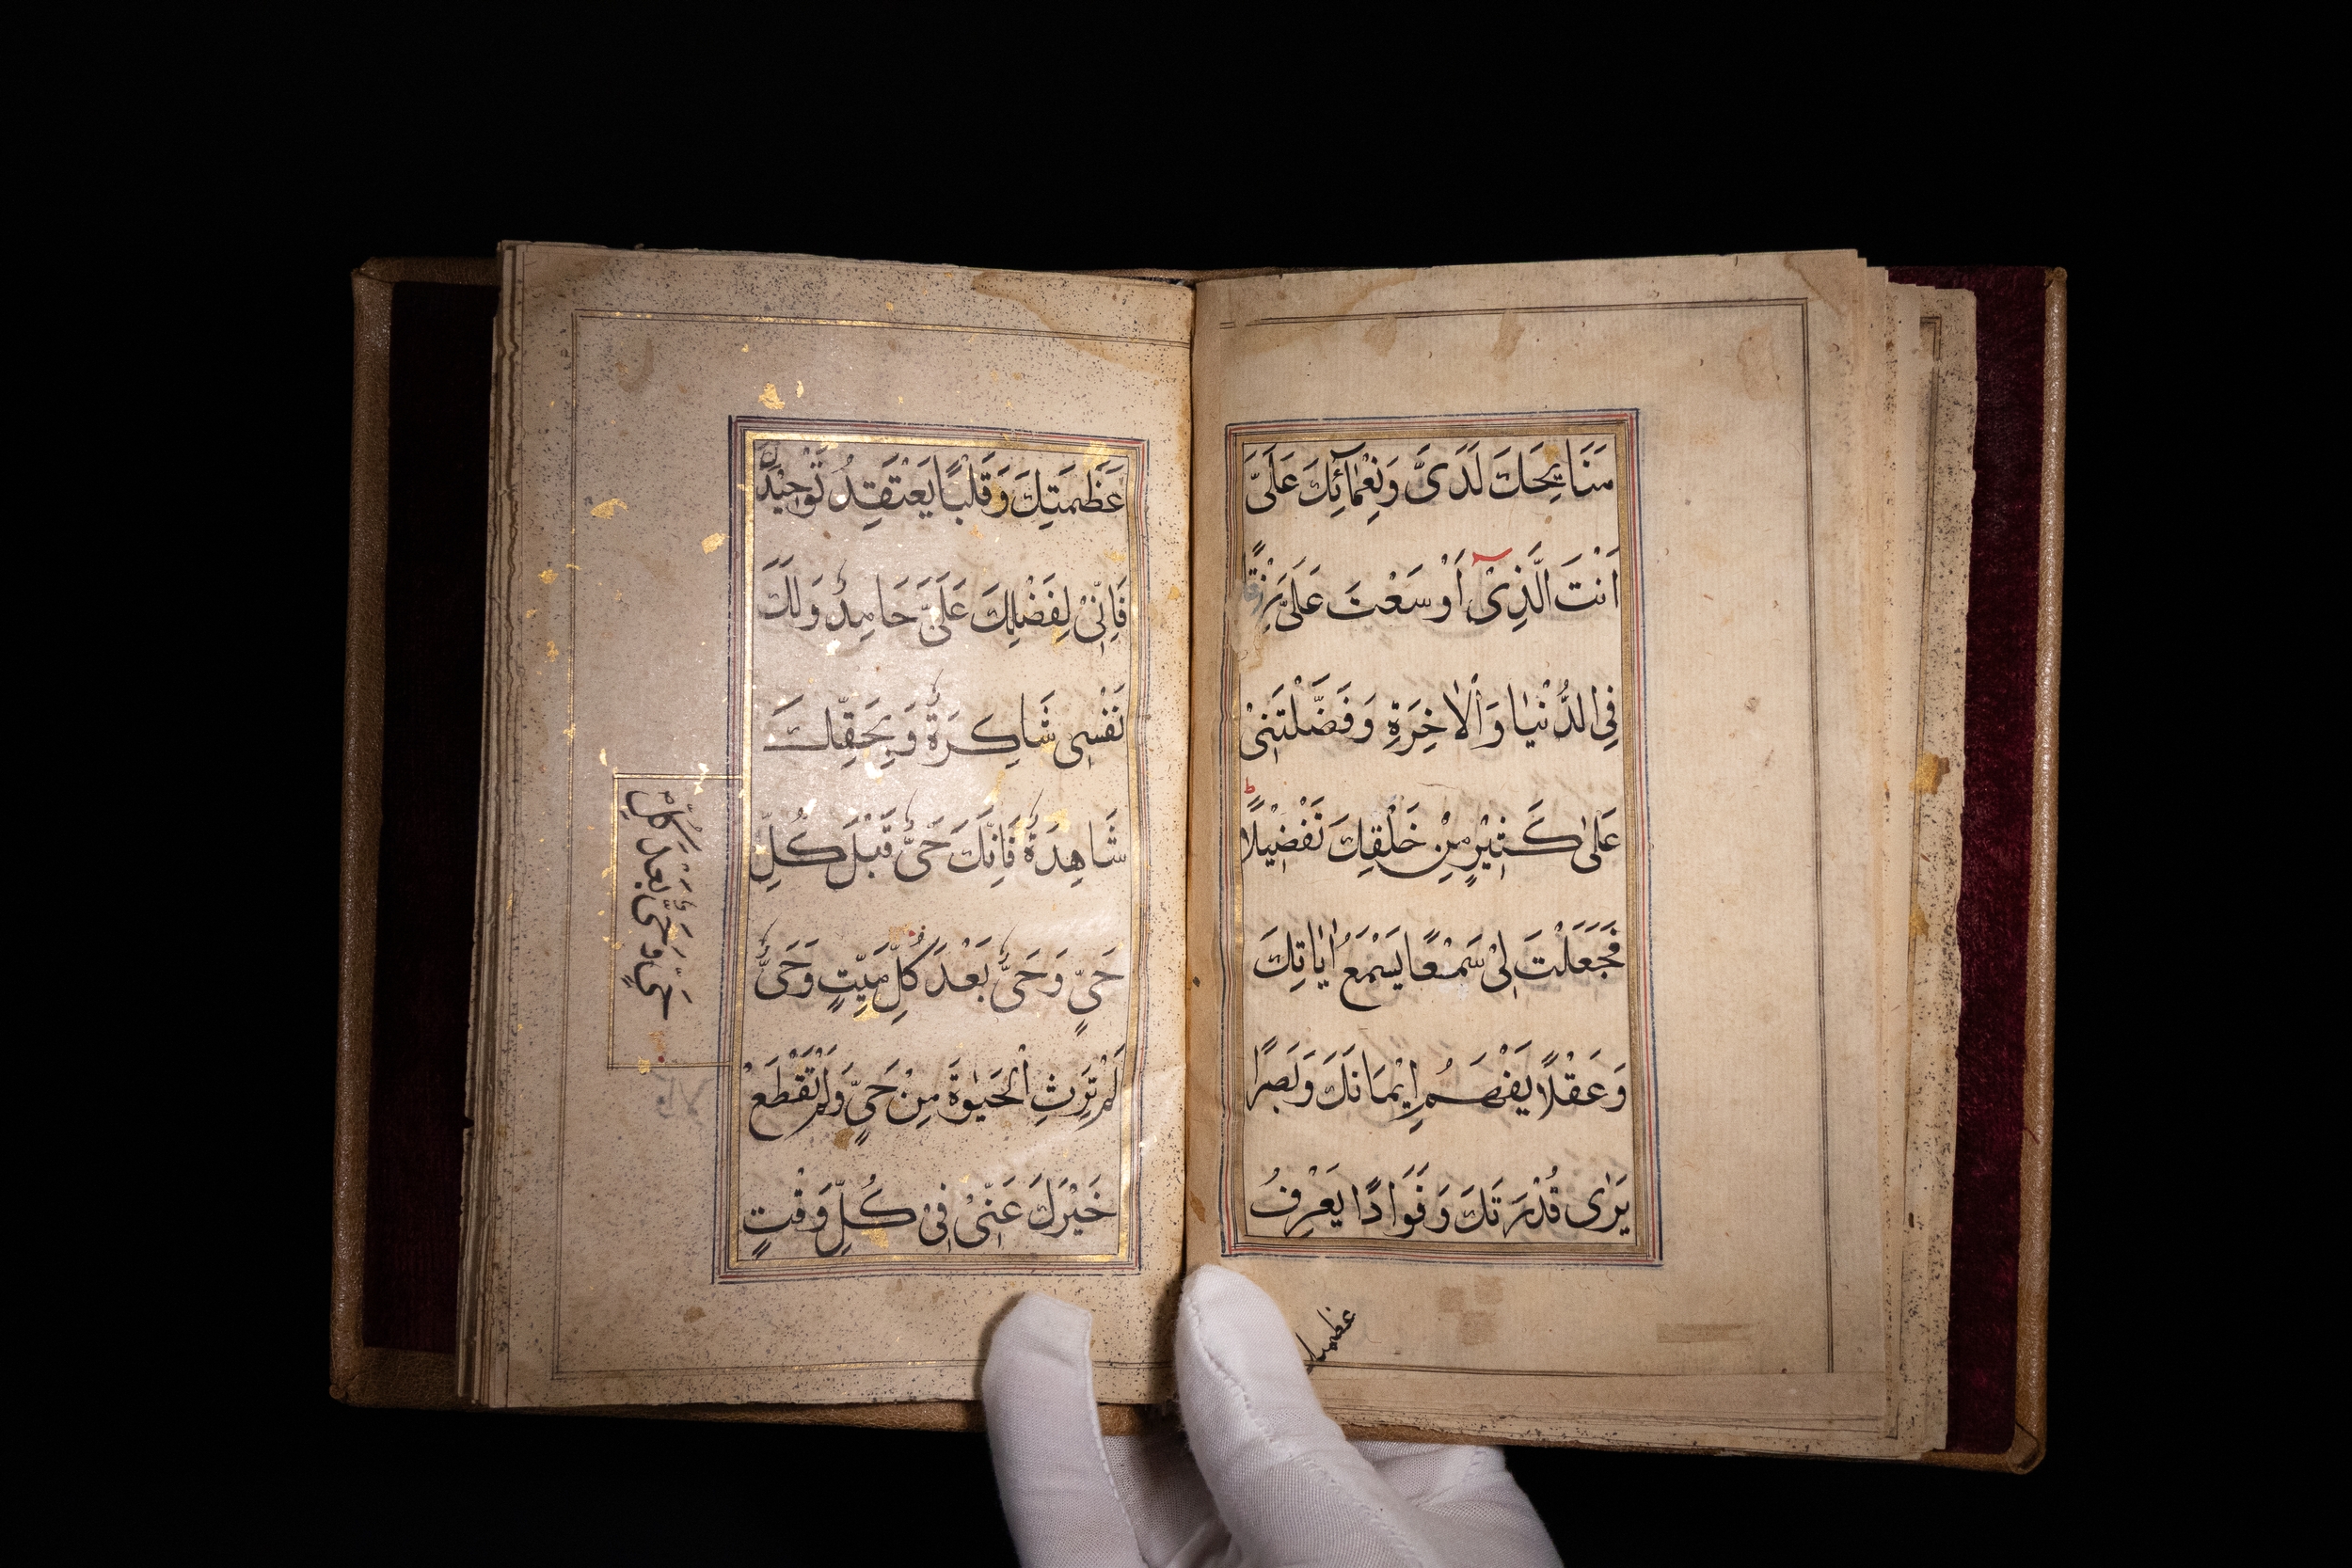 مَنَايِحَكَ لَدَىَّ وَنِعْمَآئِكَ عَلَىَّ
اَنْتَ الَّذِىْ اَوْسَعْتَ عَلَىَّ رِزْقًا
فِى الدُّنْيَا وَالْاٰخِرَةِ وَفَضَّلْتَنِىْ
عَلٰى كَثِيْرٍ مِنْ خَلْقِكَ تَفْضِيْلًا ط
فَجَعَلْتَ لِىْ سَمْعًا يَسْمَعُ اٰيَاتِكَ
وَعَقْلًا يَفْهَمُ اِيْمَانَكَ وَبَصَرًا
يَرٰى قُدْرَتَكَ وَفَوَادًا يَعْرِفُ
عظمتك
عَظْمَتِكَ وَقَلْبًا يَعْتَقِدُ تَوْحِيْدَكَ
فَاِنِّىْ لِفَضْلِكَ عَلَىَّ حَامِدٌ وَلَكَ
نَفْسِى شَاكِرَةٌ وَبِحَقِّكَ
شَاهِدَةٌ فَاِنَّكَ حَىٌّ قَبْلَ كُلِّ
حَىٍّ وَحَىٌّ بَعْدَ كُلِّ مَيِّتٍ وَحَىٌّ
لَمْ تَرِثِ الْحَيٰوةَ مِنْ حَىٍّ وَلَمْ تَقْطَعْ
خَيْرَكَ عَنِّىْ فِىْ كُلِّ وَقْتٍ
حَىٍّ وَحَىٌّ بَعْدَ كُلِّ